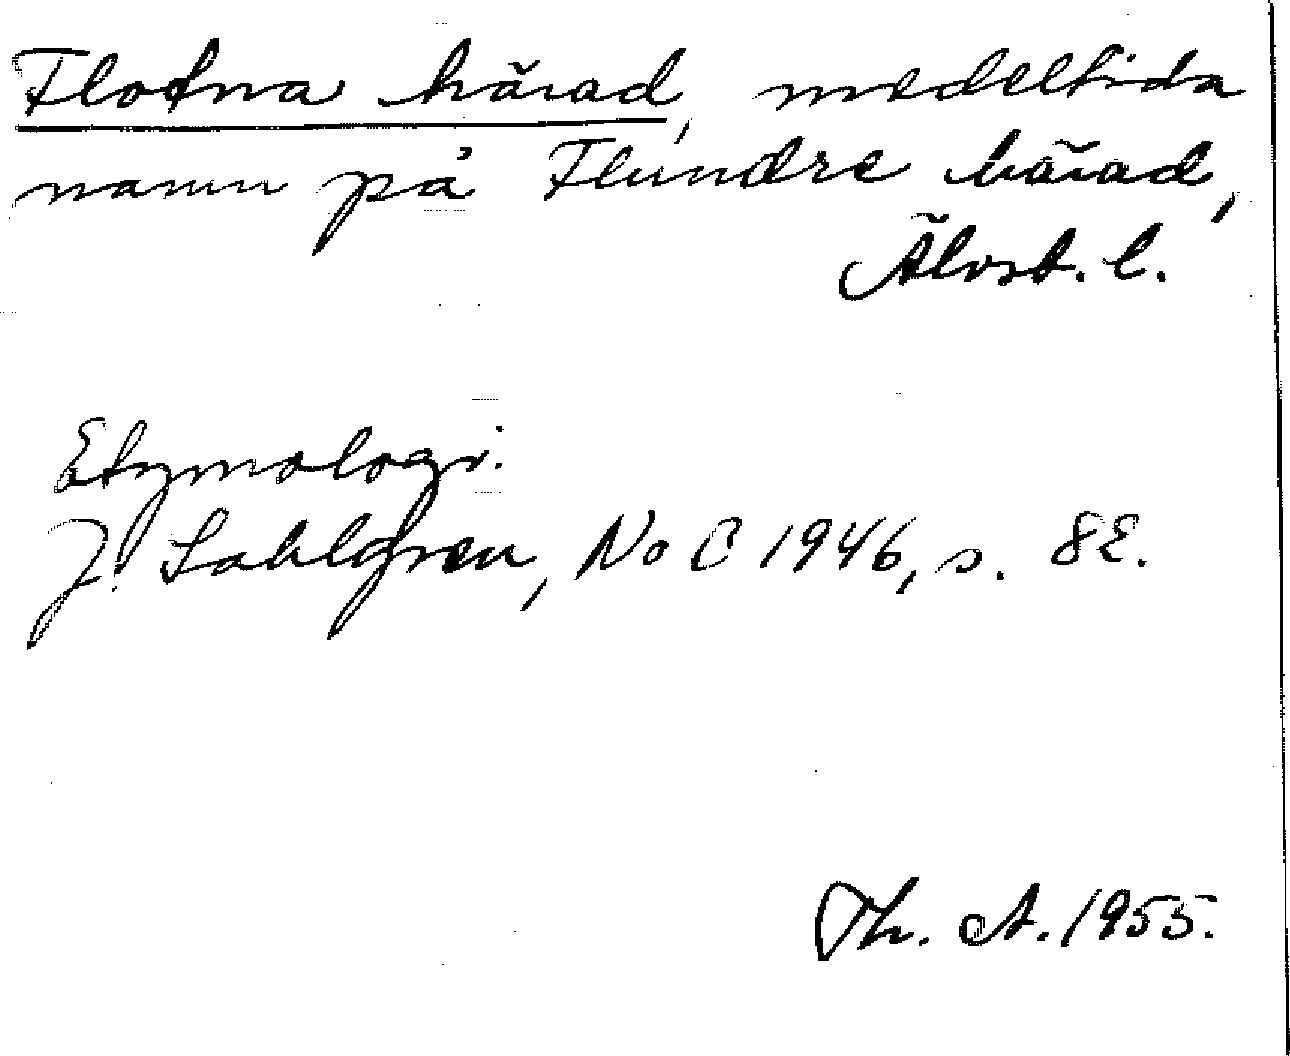 Flotna härad, medeltida
namn på Flundre härad,
Älvsb. l.
Etymologi.
J. Sahlgren, NoB 1946, s. 82.
Th. A. 1955.